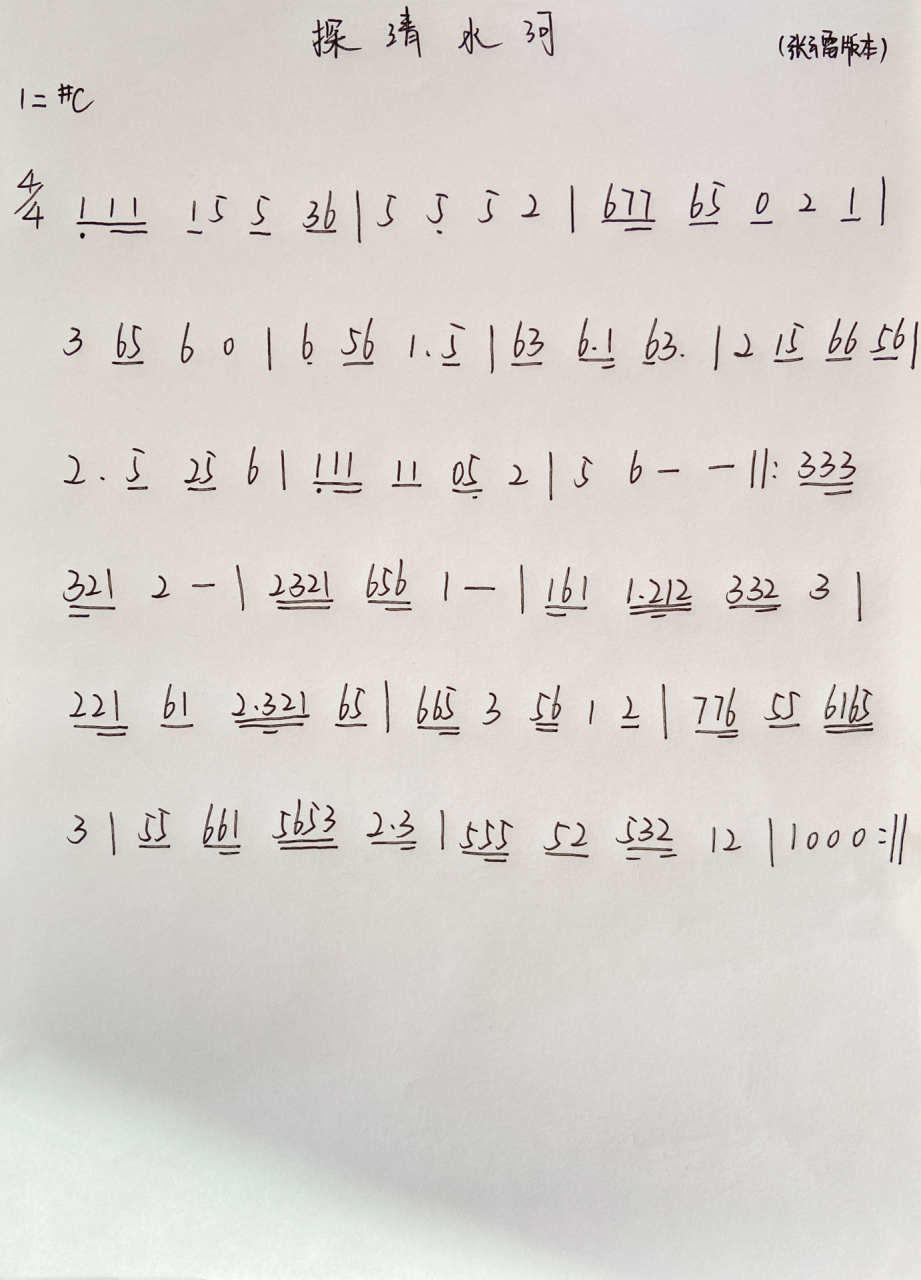 探清水河
(张云雷版本)
1=#C
4/4 111 15 5 36 | 5 5 5 2 | 677 65 0 2 1 |
3 65 6 0 | 6 56 1.5 | 63 6.1 63. | 2 15 66 56 |
2. 5 25 6 | 111 11 05 2 | 5 6 - - ||: 333
321 2 - | 2321 656 1 - | 161 1.212 332 3 |
221 61 2.321 65 | 665 3 56 1 2 | 776 55 6165
3 | 55 661 5653 2.3 | 555 52 532 12 | 1000 :||